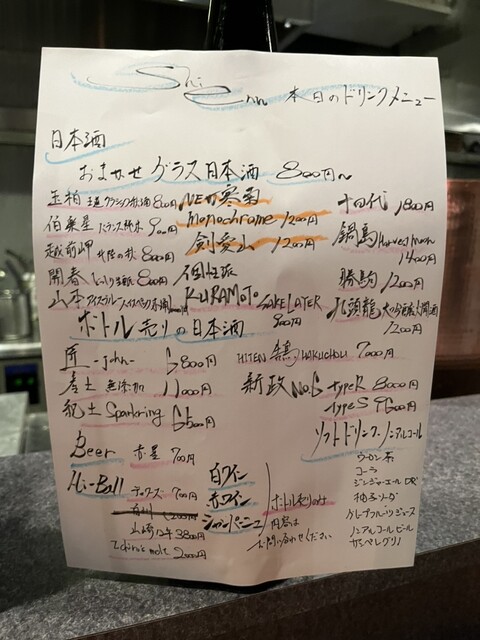 Shi Enn 本日のドリンクメニュー
日本酒
おまかせ グラス日本酒 800円〜
玉柏 純米クラシック 800円
伯楽星 900円
越前岬 北陸の秋 800円
開春 800円
山本
NEO 寒菊
monochrome 1200円
剣愛山 1200円
個性派
KURAMOTO SAKE LATER
900円
十四代 1800円
鍋島 Harvest Moon
1400円
勝駒 1200円
九頭龍 大吟醸
1200円
ボトル売りの日本酒
匠 -john- 6800円
産土 無添加 11000円
紀土 Sparkring 6500円
HITEN 鵠 HAKUCHOU 7000円
新政 No.6 type R 8000円
type S 9600円
Beer 赤星 700円
Hi-Ball ティーチャーズ 700円
白州
山崎12年 3800円
Ichiro's malt 2000円
白ワイン
赤ワイン
シャンパーニュ
ボトル売りのみ
内容は
お問い合わせください
ソフトドリンク・ノンアルコール
ウーロン茶
コーラ
ジンジャーエール
柚子ソーダ
グレープフルーツジュース
ノンアルコールビール
サンペレグリノ